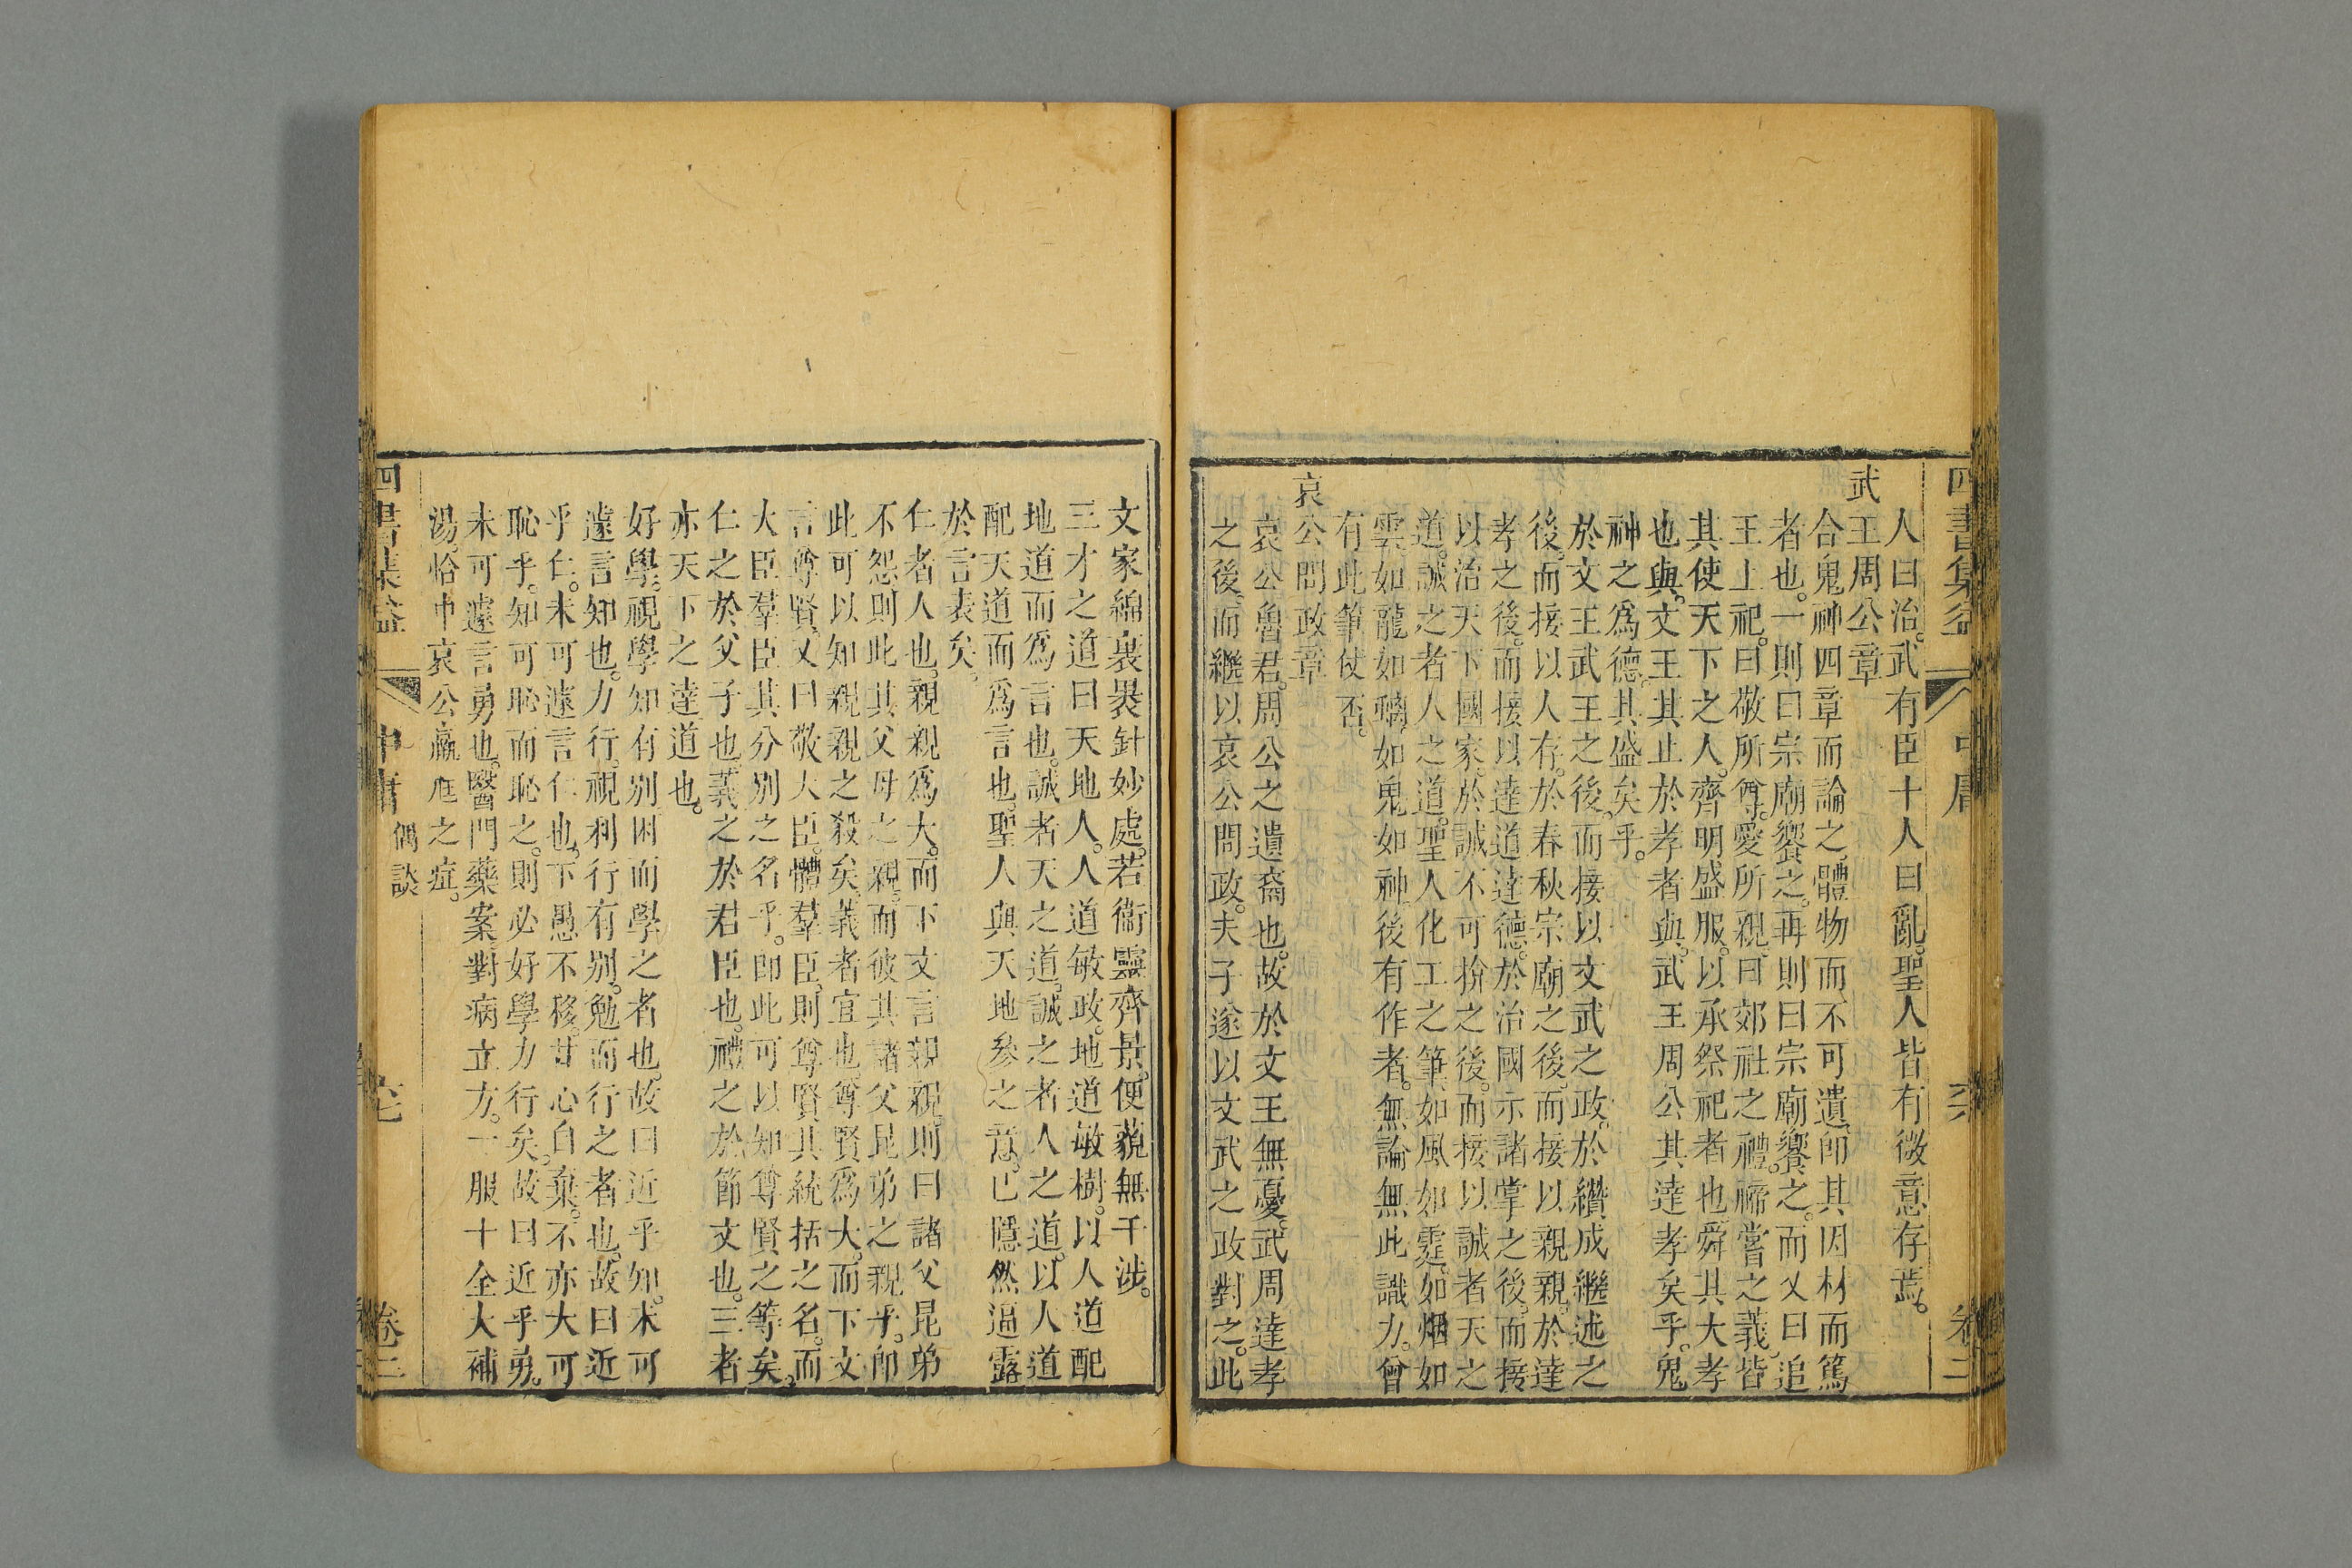 人曰治。武有臣十人曰亂。聖人皆有微意存焉。
武王周公章
合鬼神四章而論之。體物而不可遺。卽其因材而篤
者也。一則曰宗廟饗之。再則曰宗廟饗之。而又曰追
王上祀。曰敬所尊。愛所親。曰郊社之禮。禘嘗之義。皆
其使天下之人。齊明盛服。以承祭祀者也。舜其大孝
也與。文王其止於孝者與。武王周公其達孝矣乎。鬼
神之爲德。其盛矣乎。
於文王武王之後。而接以文武之政。於纘成繼述之
後。而接以人存。於春秋宗廟之後。而接以親親。於達
孝之後。而接以達道達德。於治國示諸掌之後。而接
以治天下國家。於誠不可揜之後。而接以誠者天之
道。誠之者人之道。聖人化工之筆。如風如霆。如烟如
雲。如龍如螭。如鬼如神。後有作者。無論無此識力。曾
有此筆使否。
哀公問政章
哀公魯君。周公之遺裔也。故於文王無憂。武周達孝
之後。而繼以哀公問政。夫子遂以文武之政對之。此
文家綿裏褁針妙處。若衞靈齊景。便藐無干涉。
三才之道曰天地人。人道敏政。地道敏樹。以人道配
地道而爲言也。誠者天之道。誠之者人之道。以人道
配天道而爲言也。聖人與天地參之意。已隱然逼露
於言表矣。
仁者人也。親親爲大。而下文言親親。則曰諸父昆弟
不怨則此其父母之親。而彼其諸父昆弟之親乎。卽
此可以知親親之殺矣。義者宜也。尊賢爲大。而下文
言尊賢。又曰敬大臣。體羣臣。則尊賢其統括之名。而
大臣羣臣其分別之名乎。卽此可以知尊賢之等矣。
仁之於父子也。義之於君臣也。禮之於節文也。三者
亦天下之達道也。
好學。視學知有別。困而學之者也。故曰近乎知。未可
遽言知也。力行。視利行有別。勉而行之者也。故曰近
乎仁。未可遽言仁也。下愚不移。甘心自棄。不亦大可
恥乎。知可恥而恥之。則必好學力行矣。故曰近乎勇。
未可遽言勇也。醫門藥案。對病立方。一服十全大補
湯。恰中哀公羸尫之症。
四書集益
中庸
偶談
卷三